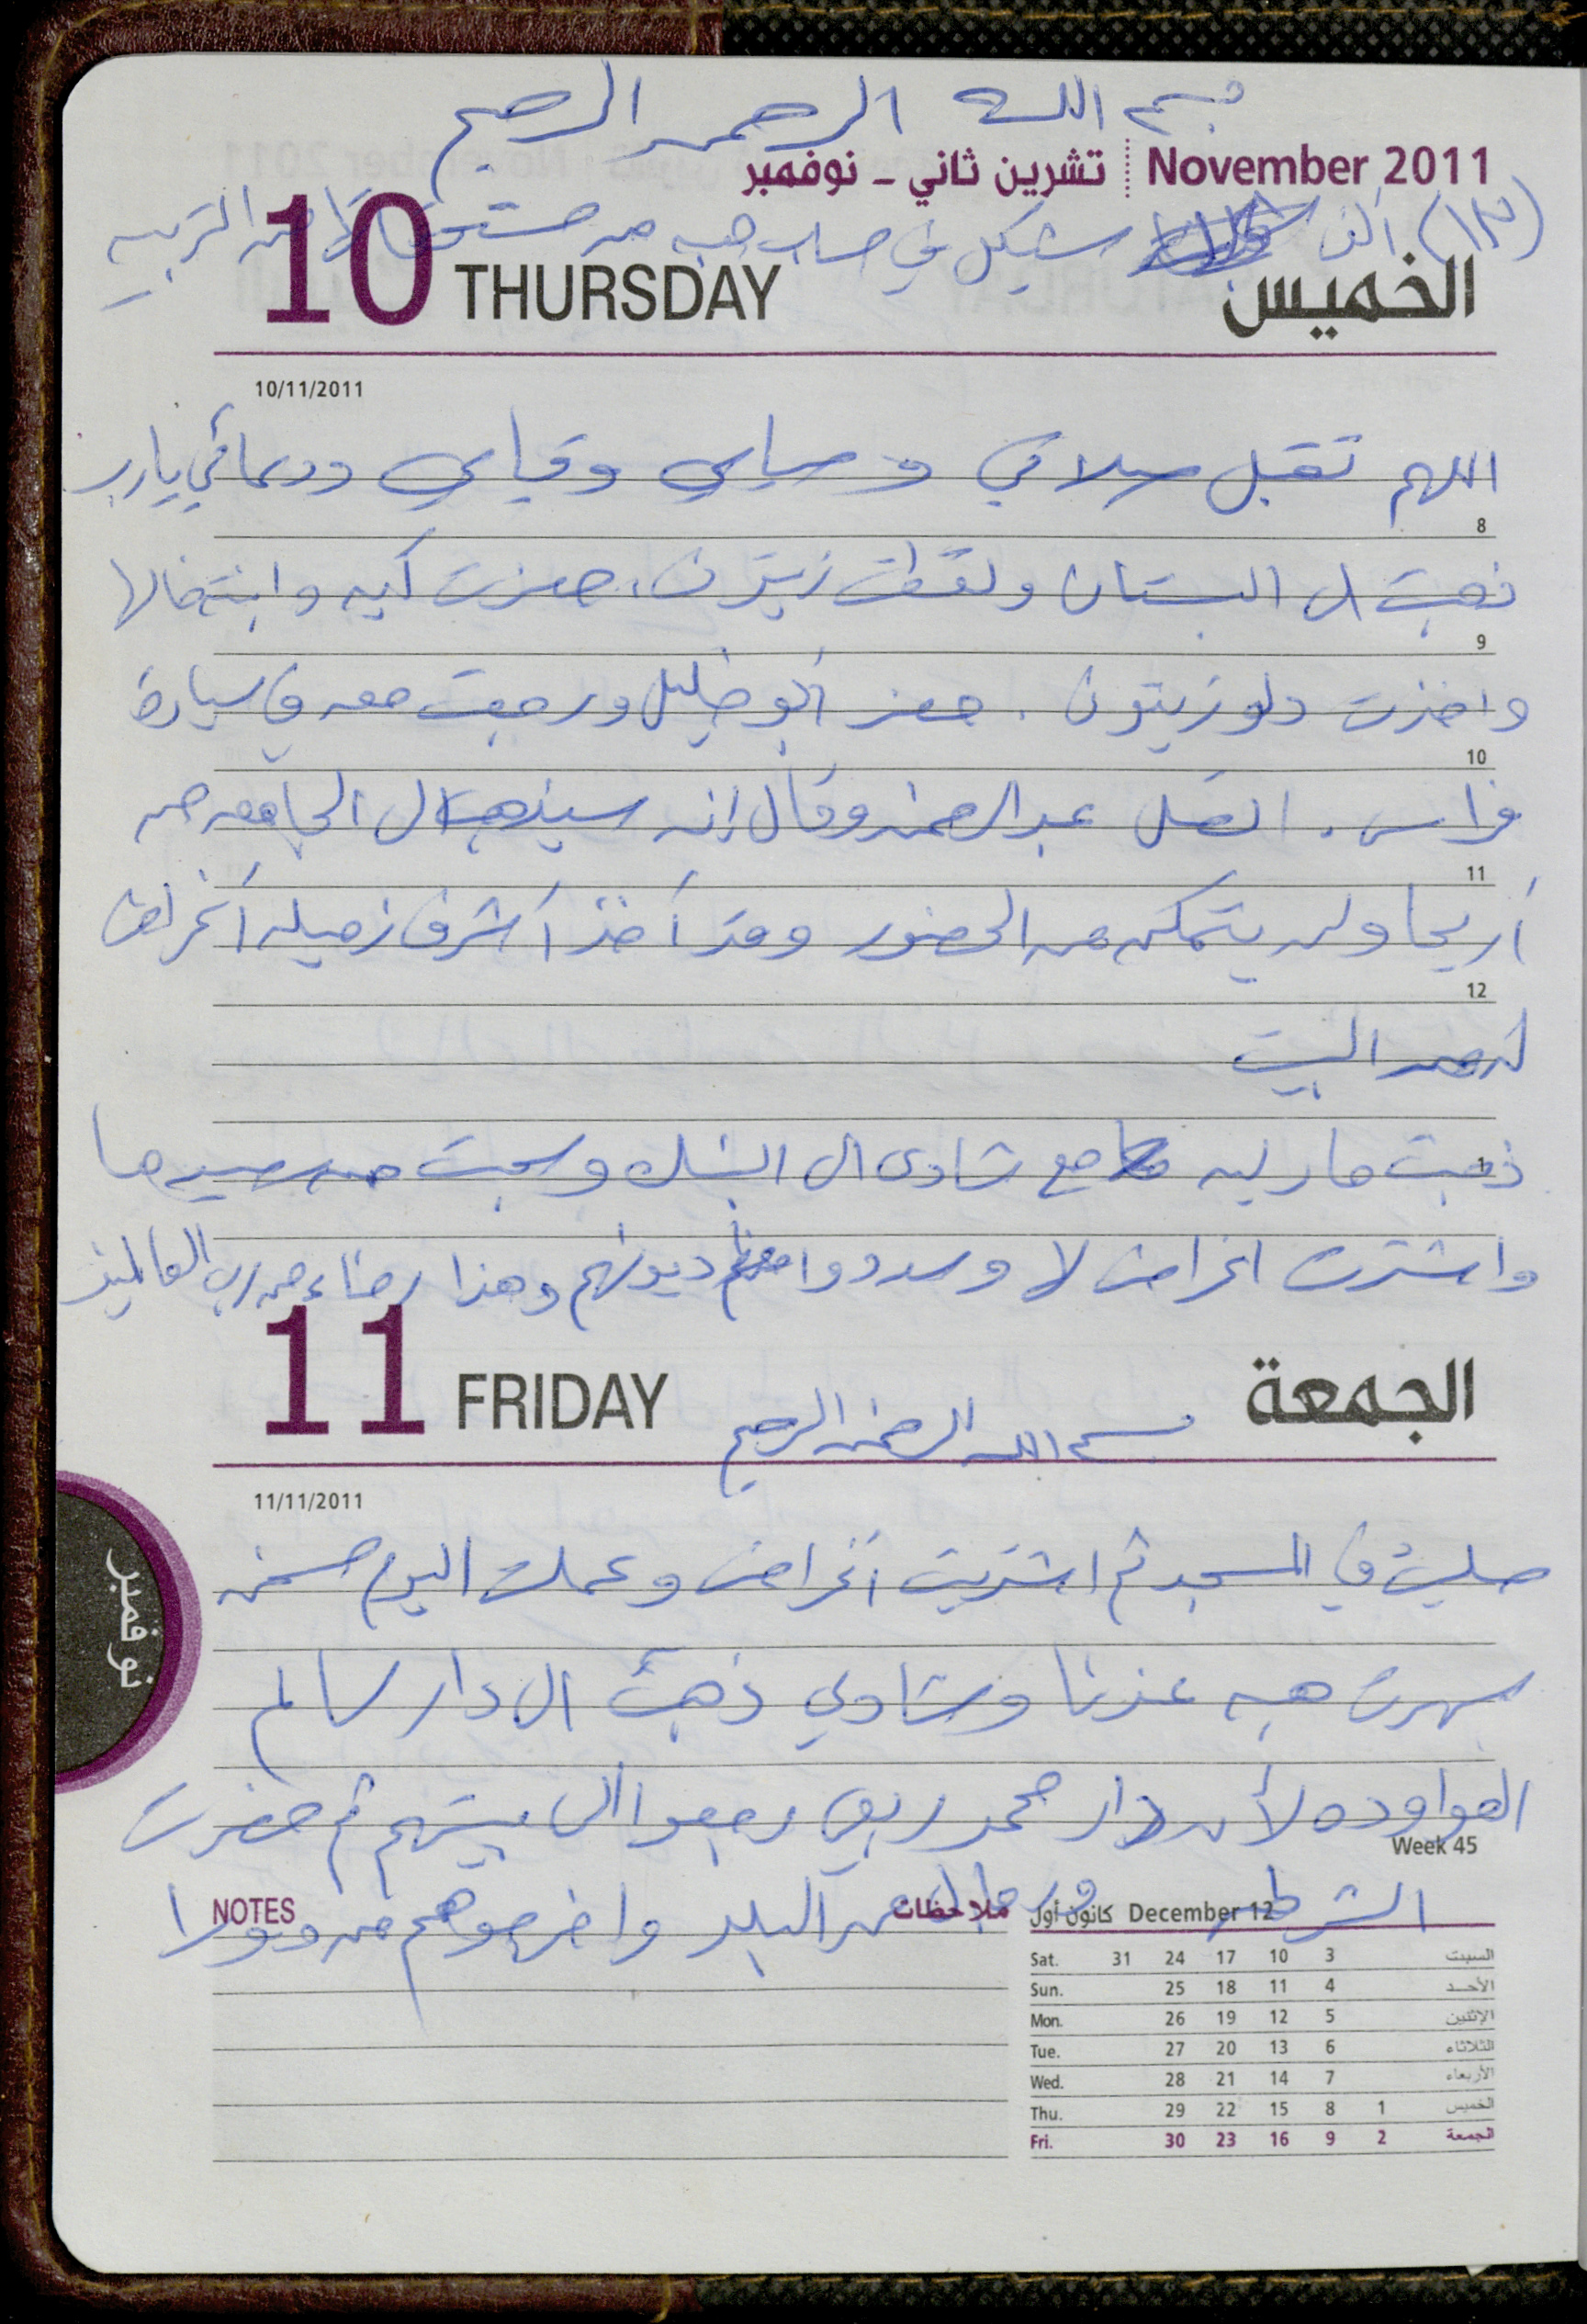 بسم الله الرحمن الرحيم
November 2011 تشرين ثاني - نوفمبر
(١٣) ألف شيكل في حساب هبه من مستحقاتها من التربيه
10 THURSDAY الخميس
10/11/2011
اللهم تقبل صلاتي وصيامي وقيامي ودعائي يارب
8
ذهبت الى البستان ولقطت زيتون. حضرت آيه وابنتها
9
واخذت دلو زيتون. حضر أبو خليل ورجعت معه في سيارة
10
فراس. اتصل عبد الرحمن وقال انه سيذهب الى الجامعه من
11
أريحا ولن يتمكن من الحضور وقد أخذ أشرف زميله أغراض
12
له من البيت
1
ذهبت ماريه مع شادي الى البنك وسحبت من رصيدها
واشترت اغراض لا وسددوا معظم ديونهم وهذا رضاء من رب العالمين
11 FRIDAY الجمعة
بسم الله الرحمن الرحيم
11/11/2011
صليت في المسجد ثم اشتريت أغراض وعملت اليوم
سهرت هبه عندنا وشادي ذهب الى دار سالم
العواوده لأن دار محمد ربعي رجعوا الى بيتهم ثم حضرت
Week 45
الشرطه من البلد واخرجوهم من دورا
NOTES ملاحظات
كانون أول December 12
Sat. 31 24 17 10 3 السبت
Sun. 25 18 11 4 الأحد
Mon. 26 19 12 5 الإثنين
Tue. 27 20 13 6 الثلاثاء
Wed. 28 21 14 7 الأربعاء
Thu. 29 22 15 8 1 الخميس
Fri. 30 23 16 9 2 الجمعة
نوفمبر